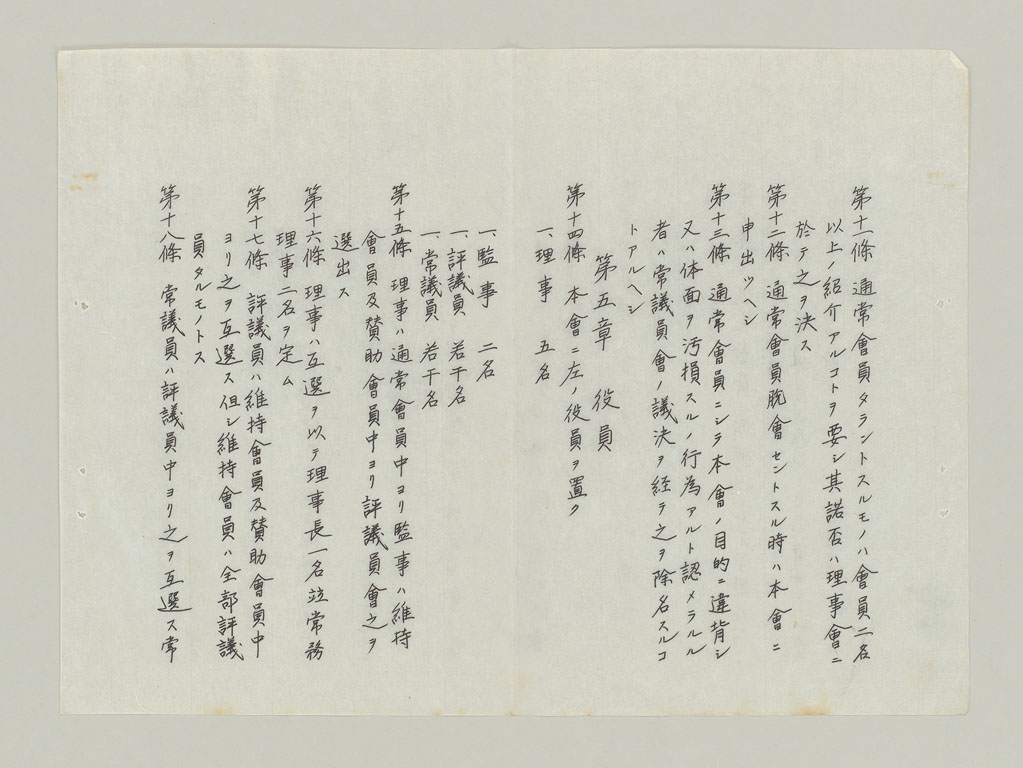 第十一條　通常會員タラントスルモノハ會員二名
以上ノ紹介アルコトヲ要シ其諾否ハ理事會ニ
於テ之ヲ決ス
第十二條　通常會員脱會セントスル時ハ本會ニ
申出ツヘシ
第十三條　通常會員ニシテ本會ノ目的ニ違背シ
又ハ体面ヲ汚損スルノ行為アルト認メラルル
者ハ常議員會ノ議決ヲ経テ之ヲ除名スルコ
トアルヘシ
第五章　役員
第十四條　本會ニ左ノ役員ヲ置ク
一、理事　五名
一、監事　二名
一、評議員　若干名
一、常議員　若干名
第十五條　理事ハ通常會員中ヨリ監事ハ維持
會員及賛助會員中ヨリ評議員會之ヲ
選出ス
第十六條　理事ハ互選ヲ以テ理事長一名並常務
理事二名ヲ定ム
第十七條　評議員ハ維持會員及賛助會員中
ヨリ之ヲ互選ス但シ維持會員ハ全部評議
員タルモノトス
第十八條　常議員ハ評議員中ヨリ之ヲ互選ス常